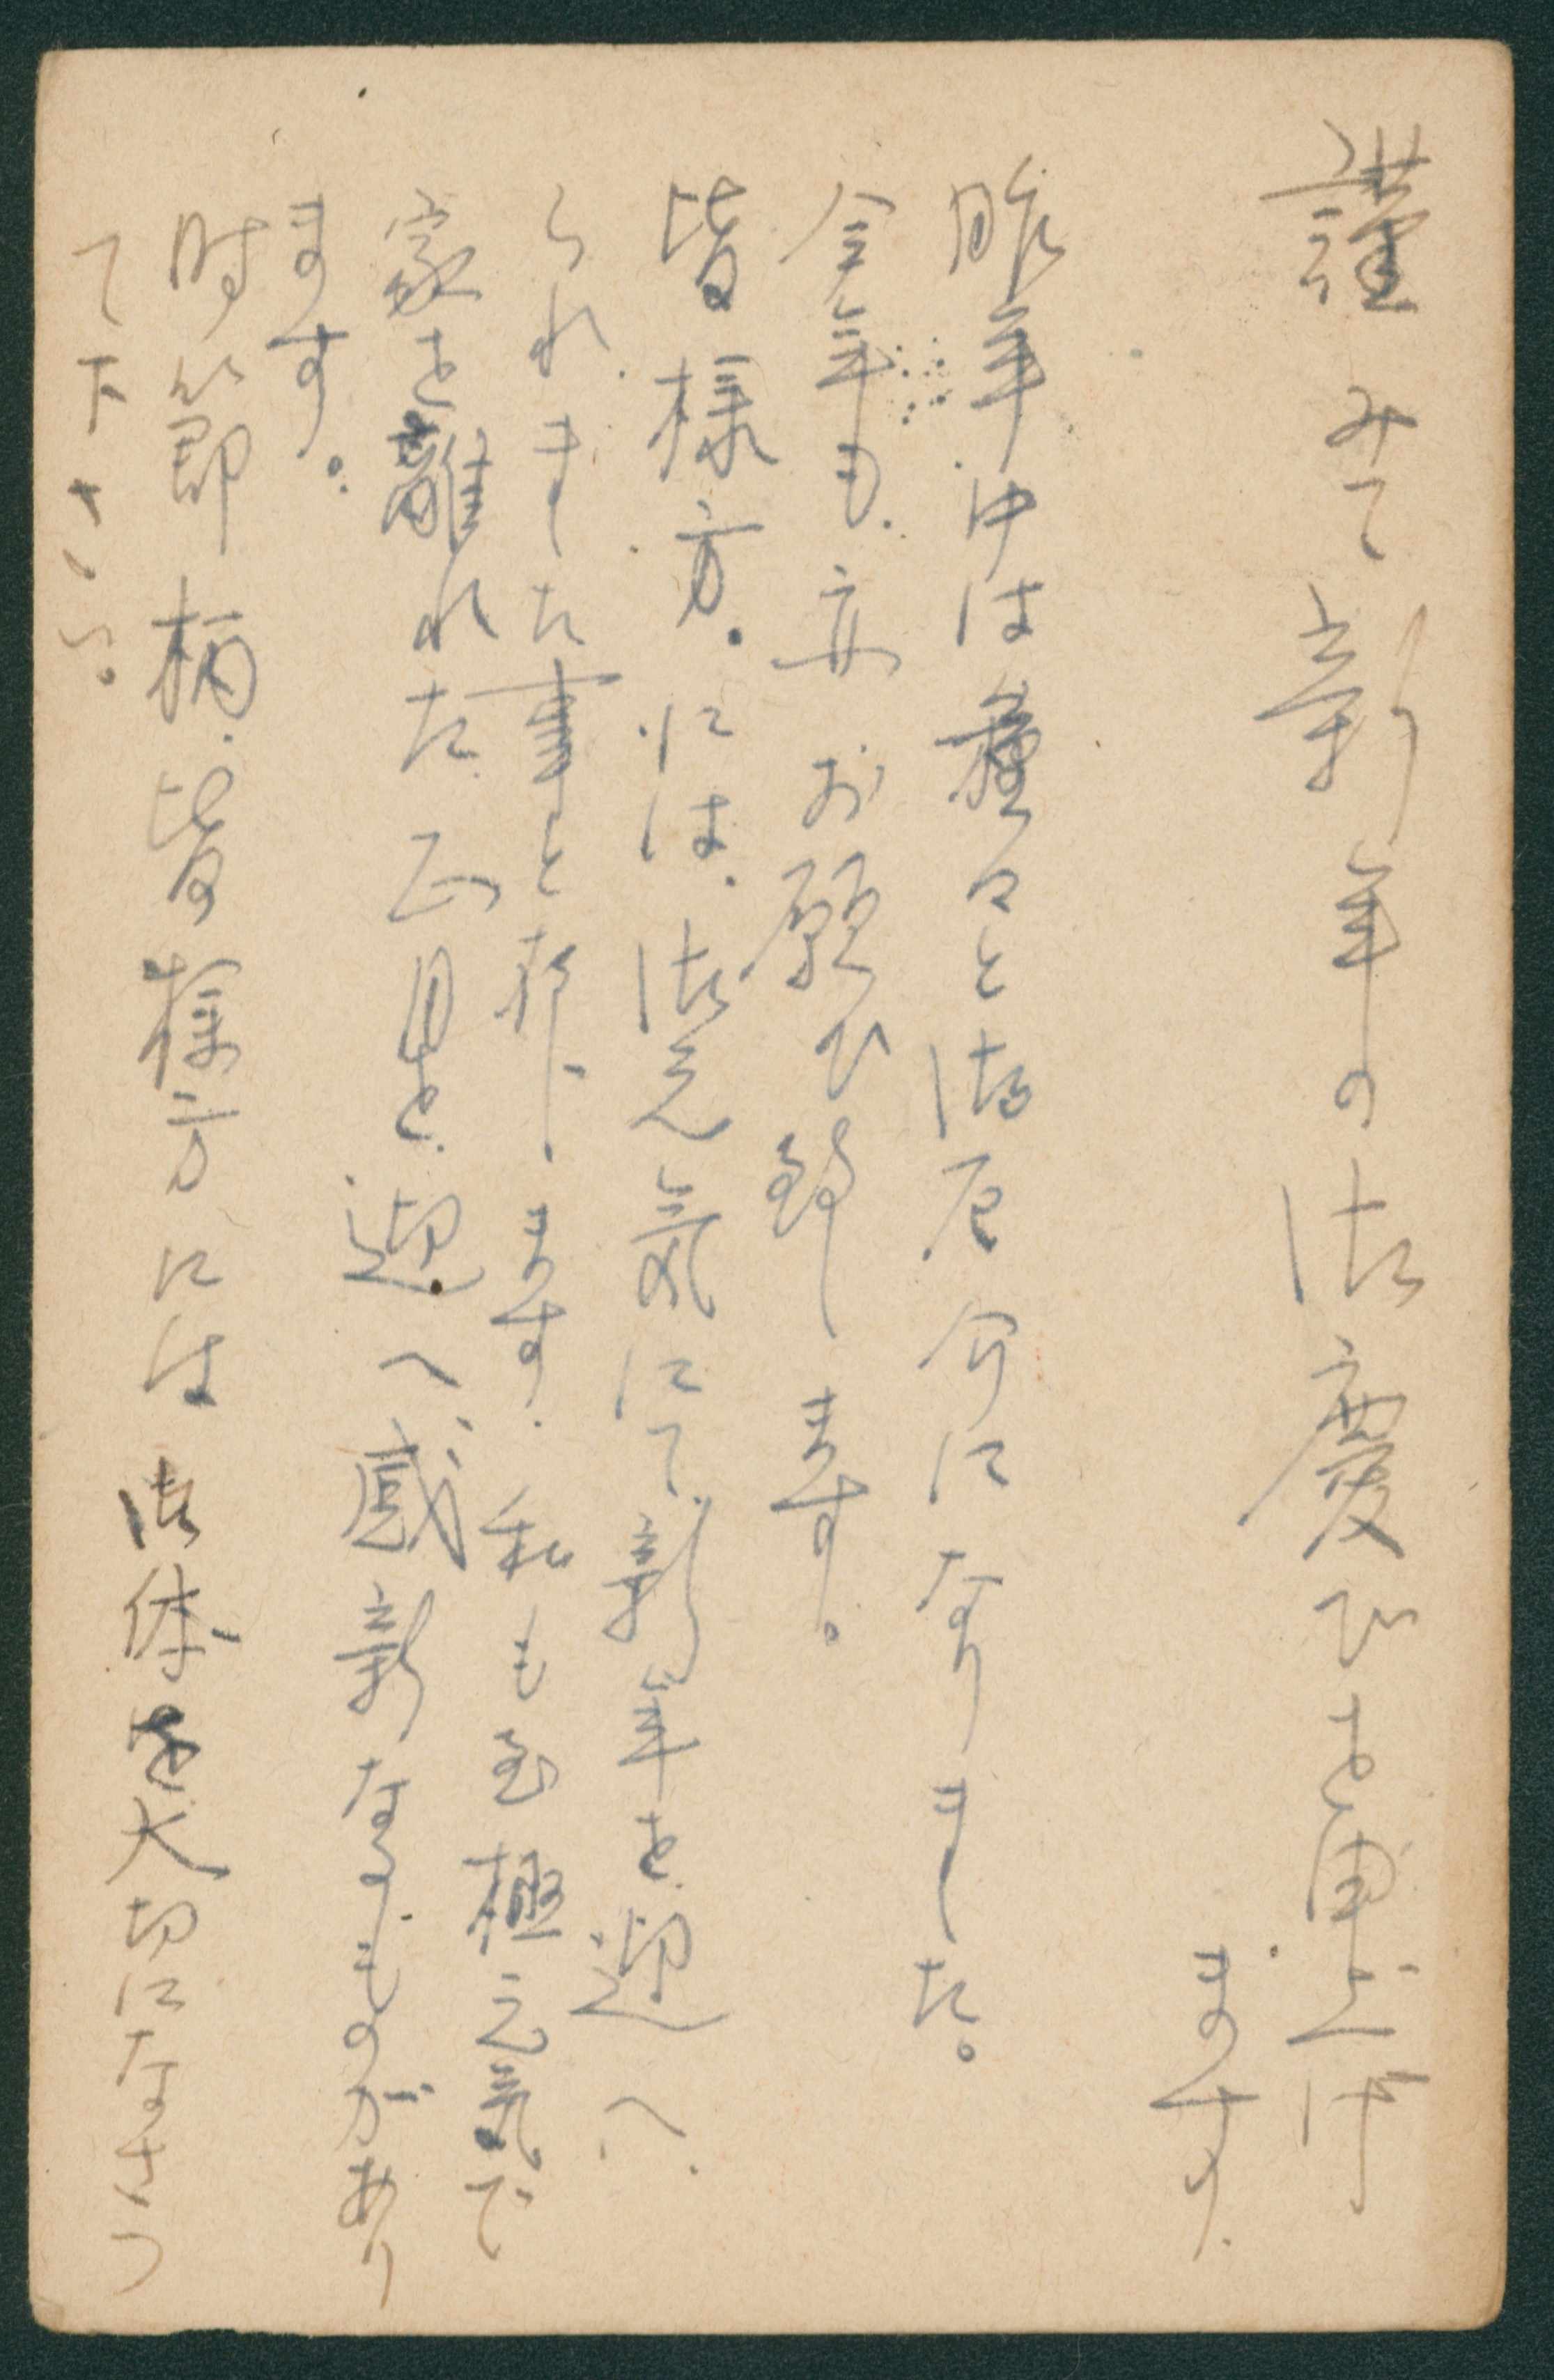 謹みて新年の御慶びを申上げ
ます
昨年中は種々と御厄介になりました。
今年も亦お願ひ致します。
皆様方には御元気にて新年を迎へ
られました事と存じます 私も至極元気で
家を離れた正月を迎へ感新なるものがあり
ます。
時節柄皆様方には御体を大切になさつ
て下さい。